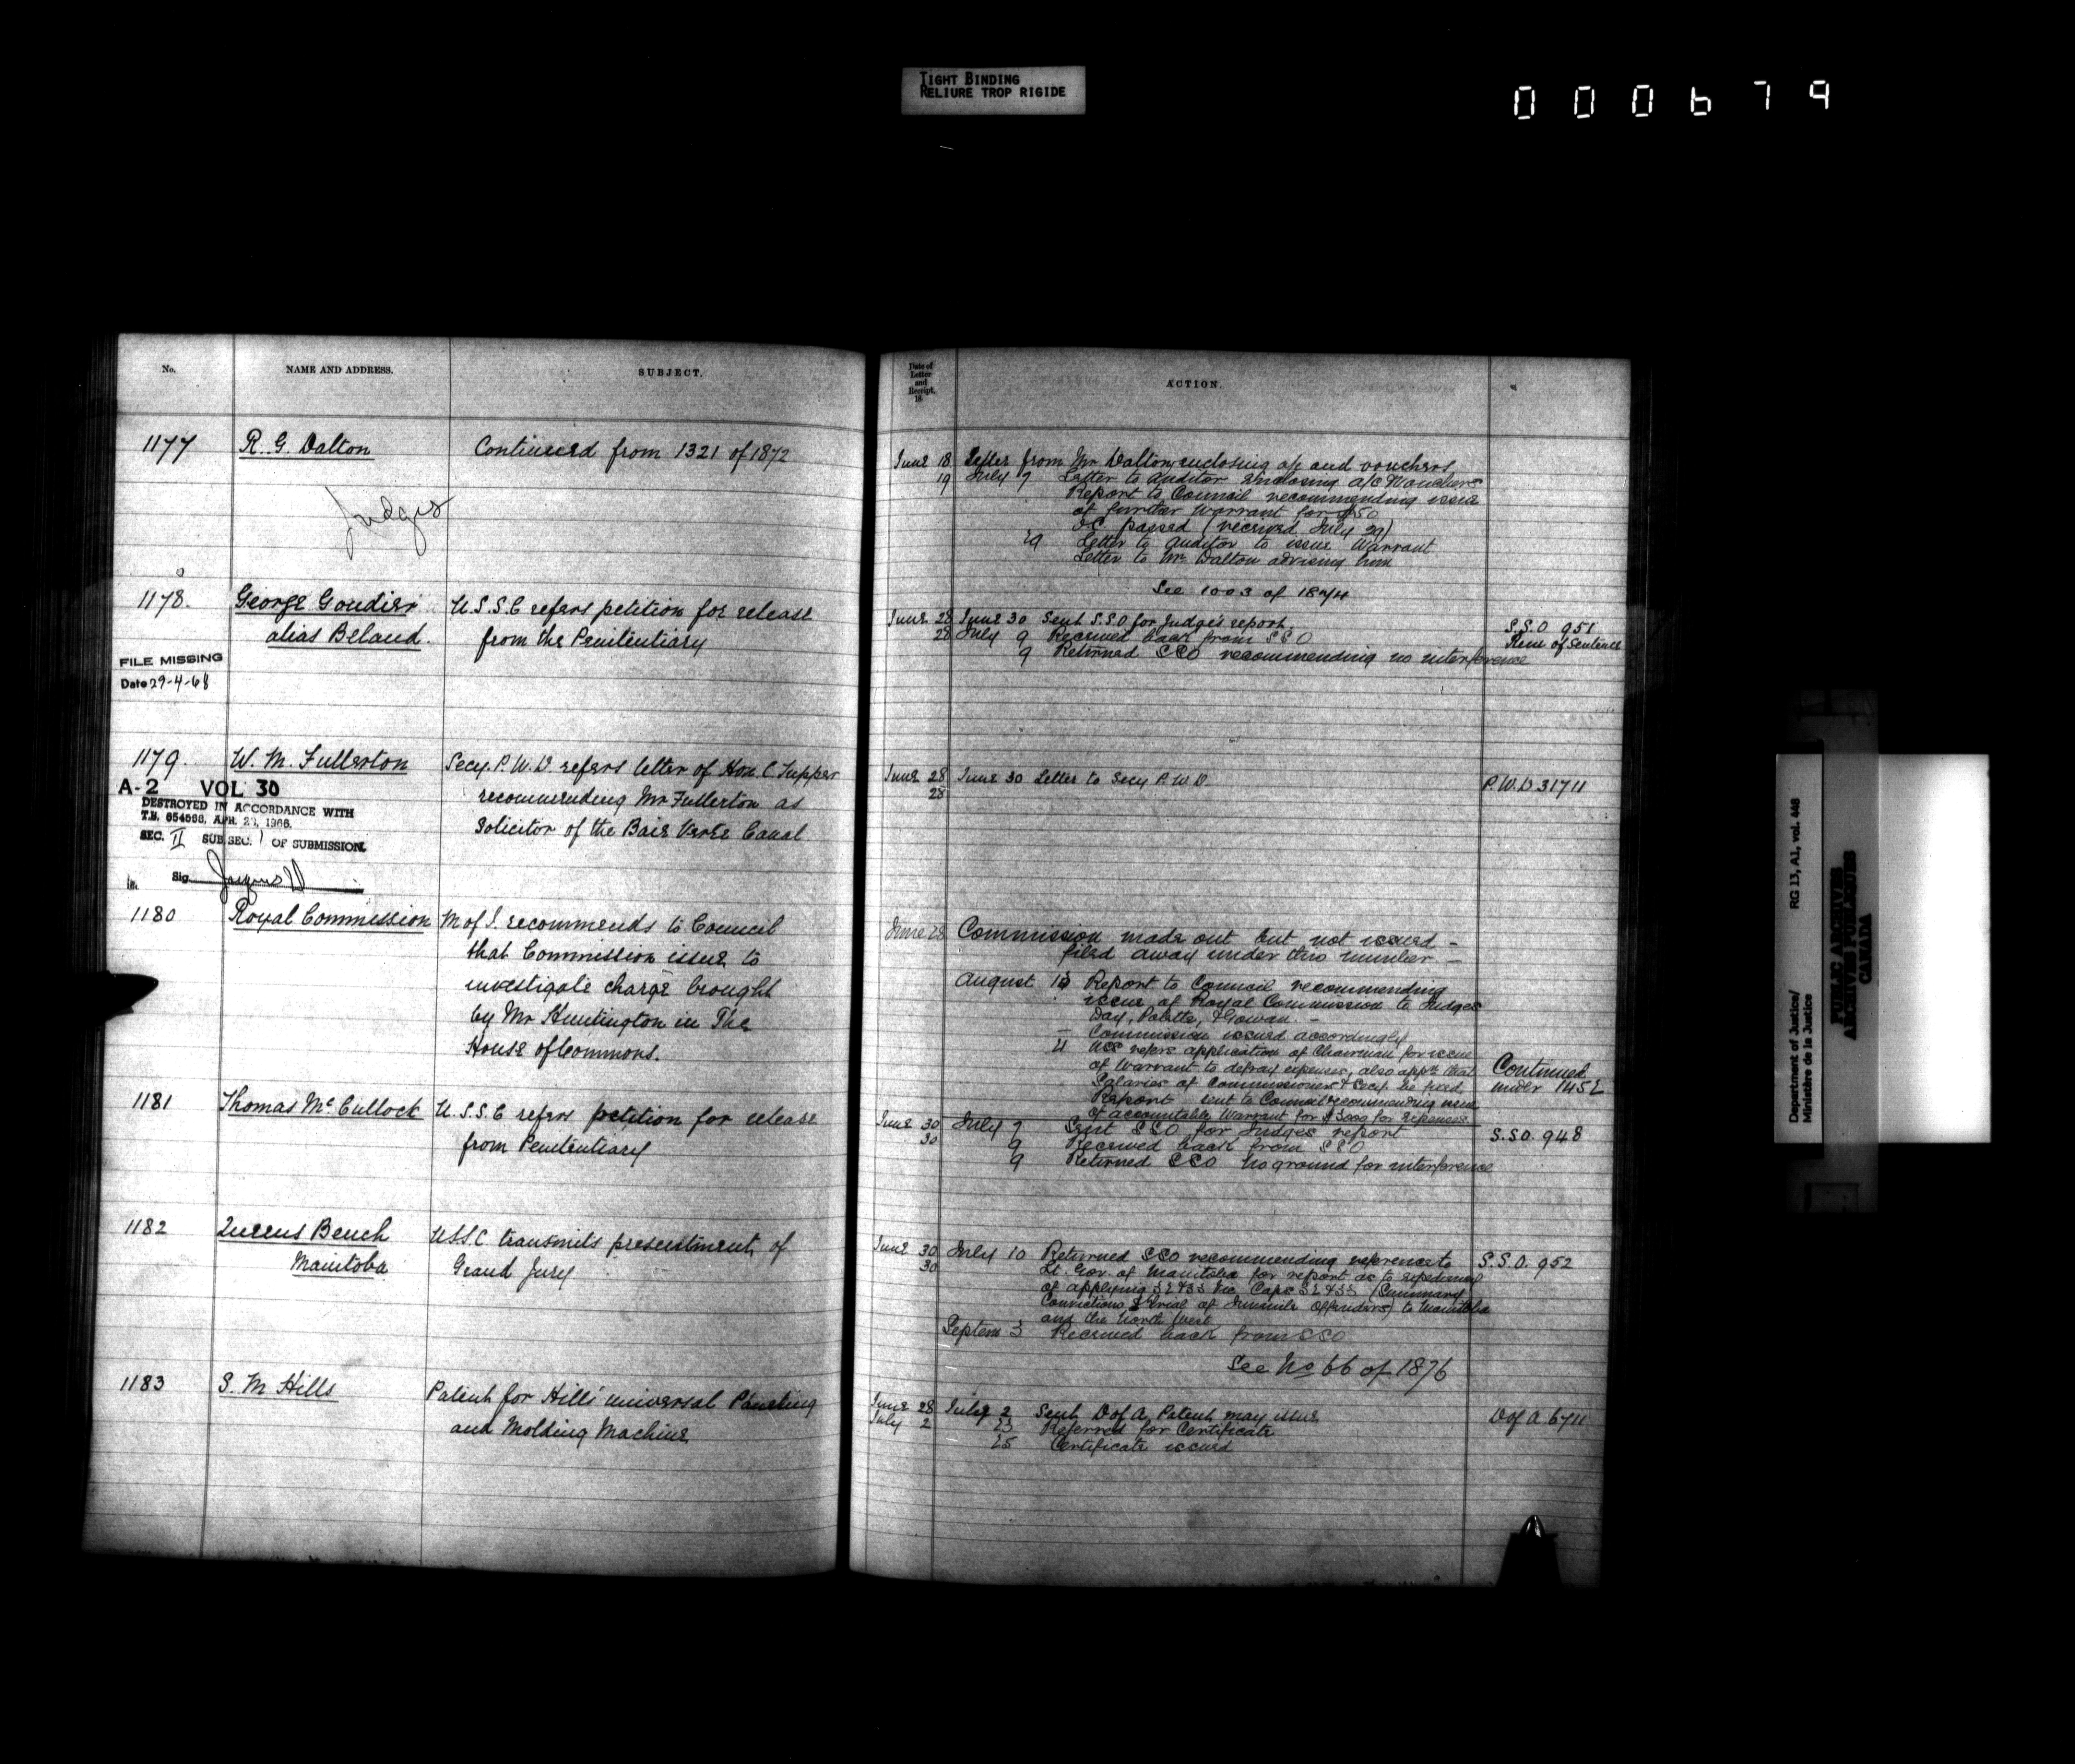 TIGHT BINDING
RELIURE TROP RIGIDE
000679
No.
NAME AND ADDRESS.
SUBJECT.
1177
R. G. Dalton
Continued from 1321 of 1872
Judges
1178.
George Goudier
alias Beland.
U.S.S.C refers petition for release
from the Penitentiary
FILE MISSING
Date 29-4-68
1179.
W. M. Fullerton
Secy. P.W.D. refers letter of Hon. C Tupper
recommending Mr Fullerton as
Solicitor of the Baie Verte Canal
A-2 VOL 30
DESTROYED IN ACCORDANCE WITH
SEC. II SUB SEC. 1 OF SUBMISSION.
Sig.
1180
Royal Commission
M of J. recommends to Council
that Commission issue to
investigate charge brought
by Mr Huntington in The
House of Commons.
1181
Thomas McCullock
U.S.S.C refers petition for release
from Penitentiary
1182
Queens Bench
Manitoba
USSC transmits presentment of
Grand Jury
1183
S. M Hills
Patent for Hills' universal
and Molding Machine
Date of
Letter
and
Receipt.
18
ACTION.
June 18 Letter from Mr Dalton enclosing a/c and vouchers
19 July 7 Letter to Auditor enclosing a/c & Vouchers
Report to Council recommending issue
of further Warrant for $50
O.C. passed (received July 29)
29 Letter to Auditor to issue Warrant
Letter to Mr Dalton advising him
See 1003 of 1874
June 28 June 30 Sent S.S.O for Judge's report.
28 July 9 Received back from SSO
9 Returned SSO recommending no interference
S.S.O 951
Rem of Sentence
June 28 June 30 Letter to Secy P.W.D.
28
P.W.D. 31711
June 28 Commission made out but not issued -
filed away under this number -
August 14 Report to Council recommending
issue of Royal Commission to Judges
Day, Polette, & Gowan -
- Commission issued accordingly
USS refers application of Chairman for issue
of Warrant to defray expenses, also appn that
Salaries of Commissioners & Secy be fixed
Report sent to Council recommending issue
of accountable Warrant for $3000 for expenses
Continued
under 1452
June 30 July 7 Sent SSO for Judges report
30 9 Received back from SSO
9 Returned SSO no ground for interference
S.S.O. 948
June 30 July 10 Returned SSO recommending reference to
30 Lt. Gov. of Manitoba for report as to expediency
of applying 32 & 33 Vic Caps 32 & 33 (Summary
Convictions & trial of Juvenile Offenders) to Manitoba
and the North West
Septem 3 Received back from SSO
See No 66 of 1876
S.S.O. 952
June 28 July 2 Sent D of A, Patent may issue
July 2 23 Referred for Certificate
25 Certificate issued
D of A 6711
Department of Justice/
Ministère de la Justice
RG 13, A1, vol. 448
PUBLIC ARCHIVES
ARCHIVES PUBLIQUES
CANADA